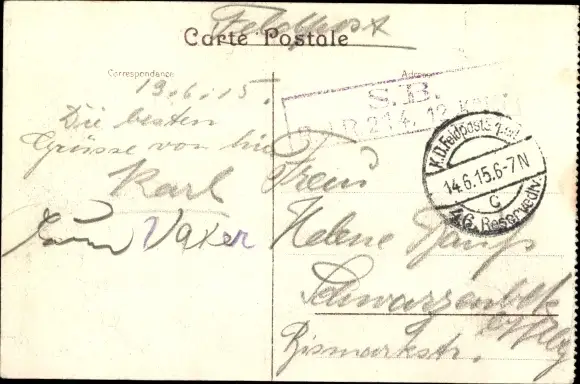 Feldpost
Carte Postale
Correspondance
Adresse
13.6.15.
Die besten
Grüsse von hie
Karl
Vater
S.B.
R.I.R. 214. 12. Komp.
K.D. Feldpostst
14.6.15.6-7N
c
46. Reservediv.
Helene
Schwarzenbek
Bismarkstr.